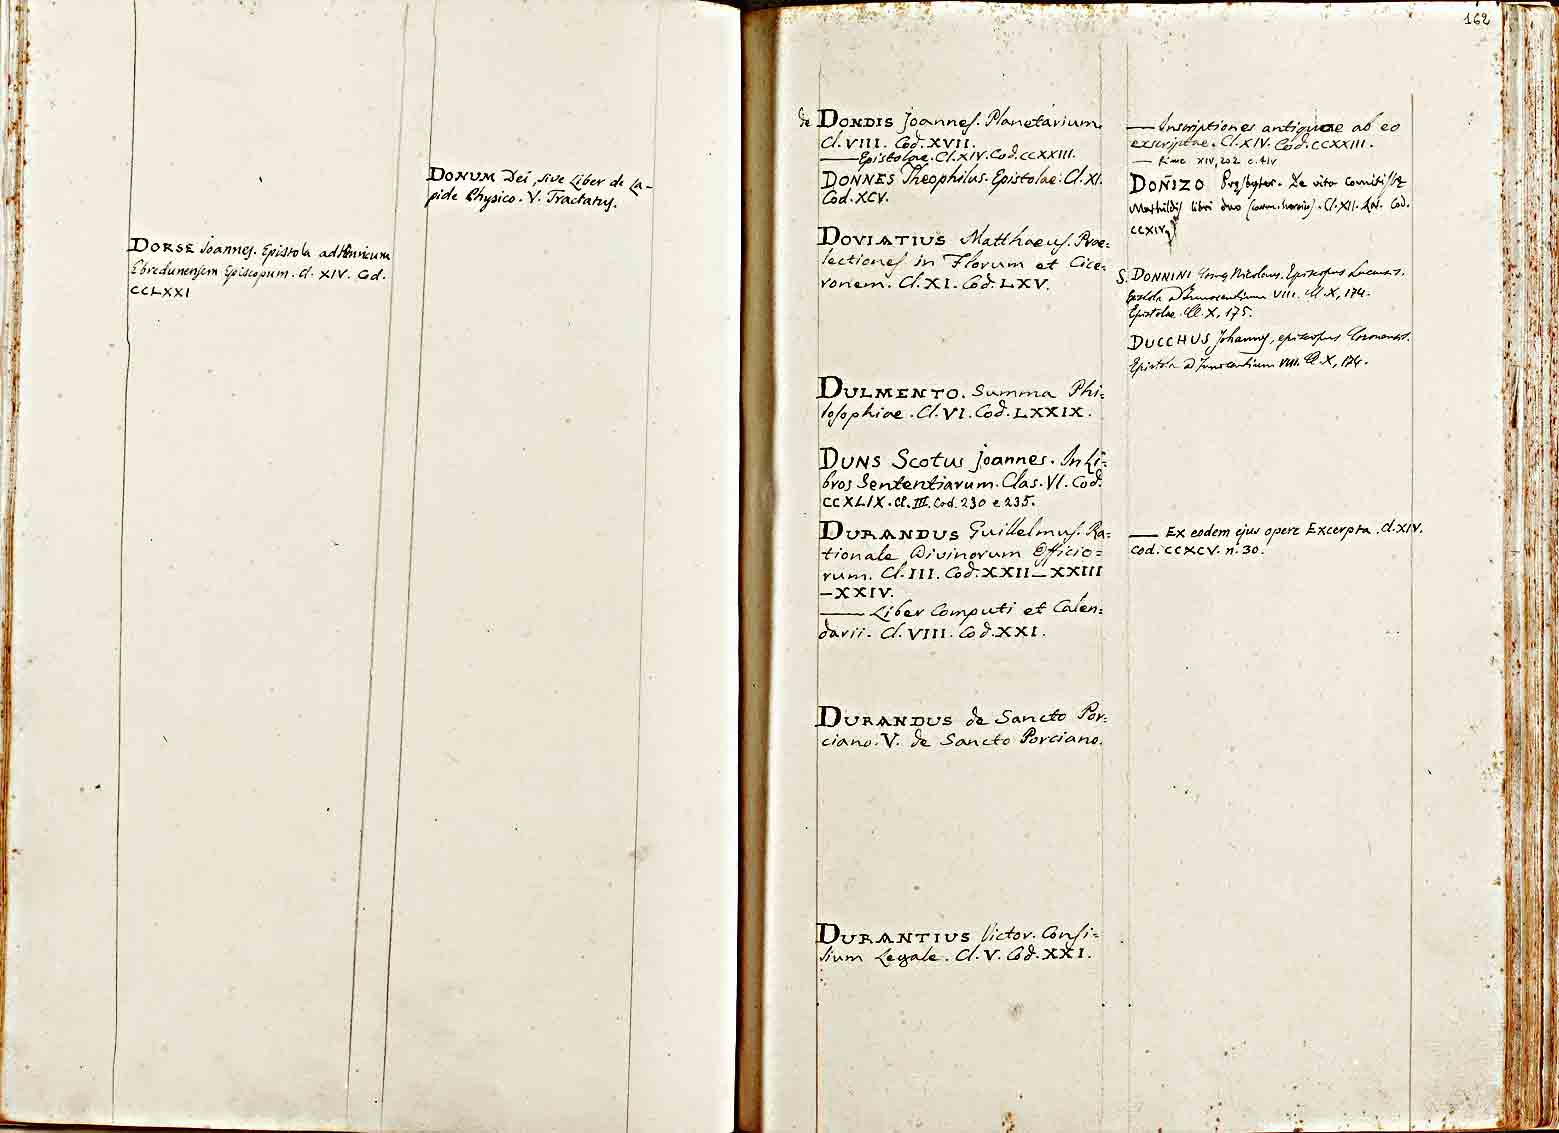 DORSE Joannes. Epistola ad Henricum
Ebredunensem Episcopum. Cl. XIV. Cod.
CCLXXI
DONUM Dei, sive Liber de La-
pide Physico. V. Tractatus.
162
de DONDIS Joannes. Planetarium.
Cl. VIII. Cod. XVII.
—— Epistolae. Cl. XIV. Cod. CCXXIII.
DONNES Theophilus. Epistolae. Cl. XI.
Cod. XCV.
DOVIATIUS Matthaeus. Prae=
lectiones in Florum et Cice=
ronem. Cl. XI. Cod. LXV.
DULMENTO. Summa Phi=
losophiae. Cl. VI. Cod. LXXIX.
DUNS Scotus Joannes. In Li=
bros Sententiarum. Clas. VI. Cod.
CCXLIX. Cl. III. Cod. 230 e 235.
DURANDUS Guillelmus. Ra=
tionale Divinorum Officio=
rum. Cl. III. Cod. XXII—XXIII
—XXIV.
—— Liber Computi et Calen=
darii. Cl. VIII. Cod. XXI.
DURANDUS de Sancto Por=
ciano. V. de Sancto Porciano.
DURANTIUS Victor. Consi=
lium Legale. Cl. V. Cod. XXI.
—— Inscriptiones antiquae ab eo
exscriptae. Cl. XIV. Cod. CCXXIII.
— Rime XIV, 202 c. 41v
DONIZO Presbyter. De vita comitissae
Mathildis libri duo. Cl. XII. Lat. Cod.
CCXIV
S. DONNINI Nicolaus. Episcopus
Epistola ad Innocentium VIII. Cl. X, 174.
Epistolae. Cl. X, 175.
DUCCHUS Johannes, episcopus Coronensis.
Epistola ad Innocentium VIII. Cl. X, 174.
—— Ex eodem ejus opere Excerpta. Cl. XIV.
Cod. CCXCV. n. 30.